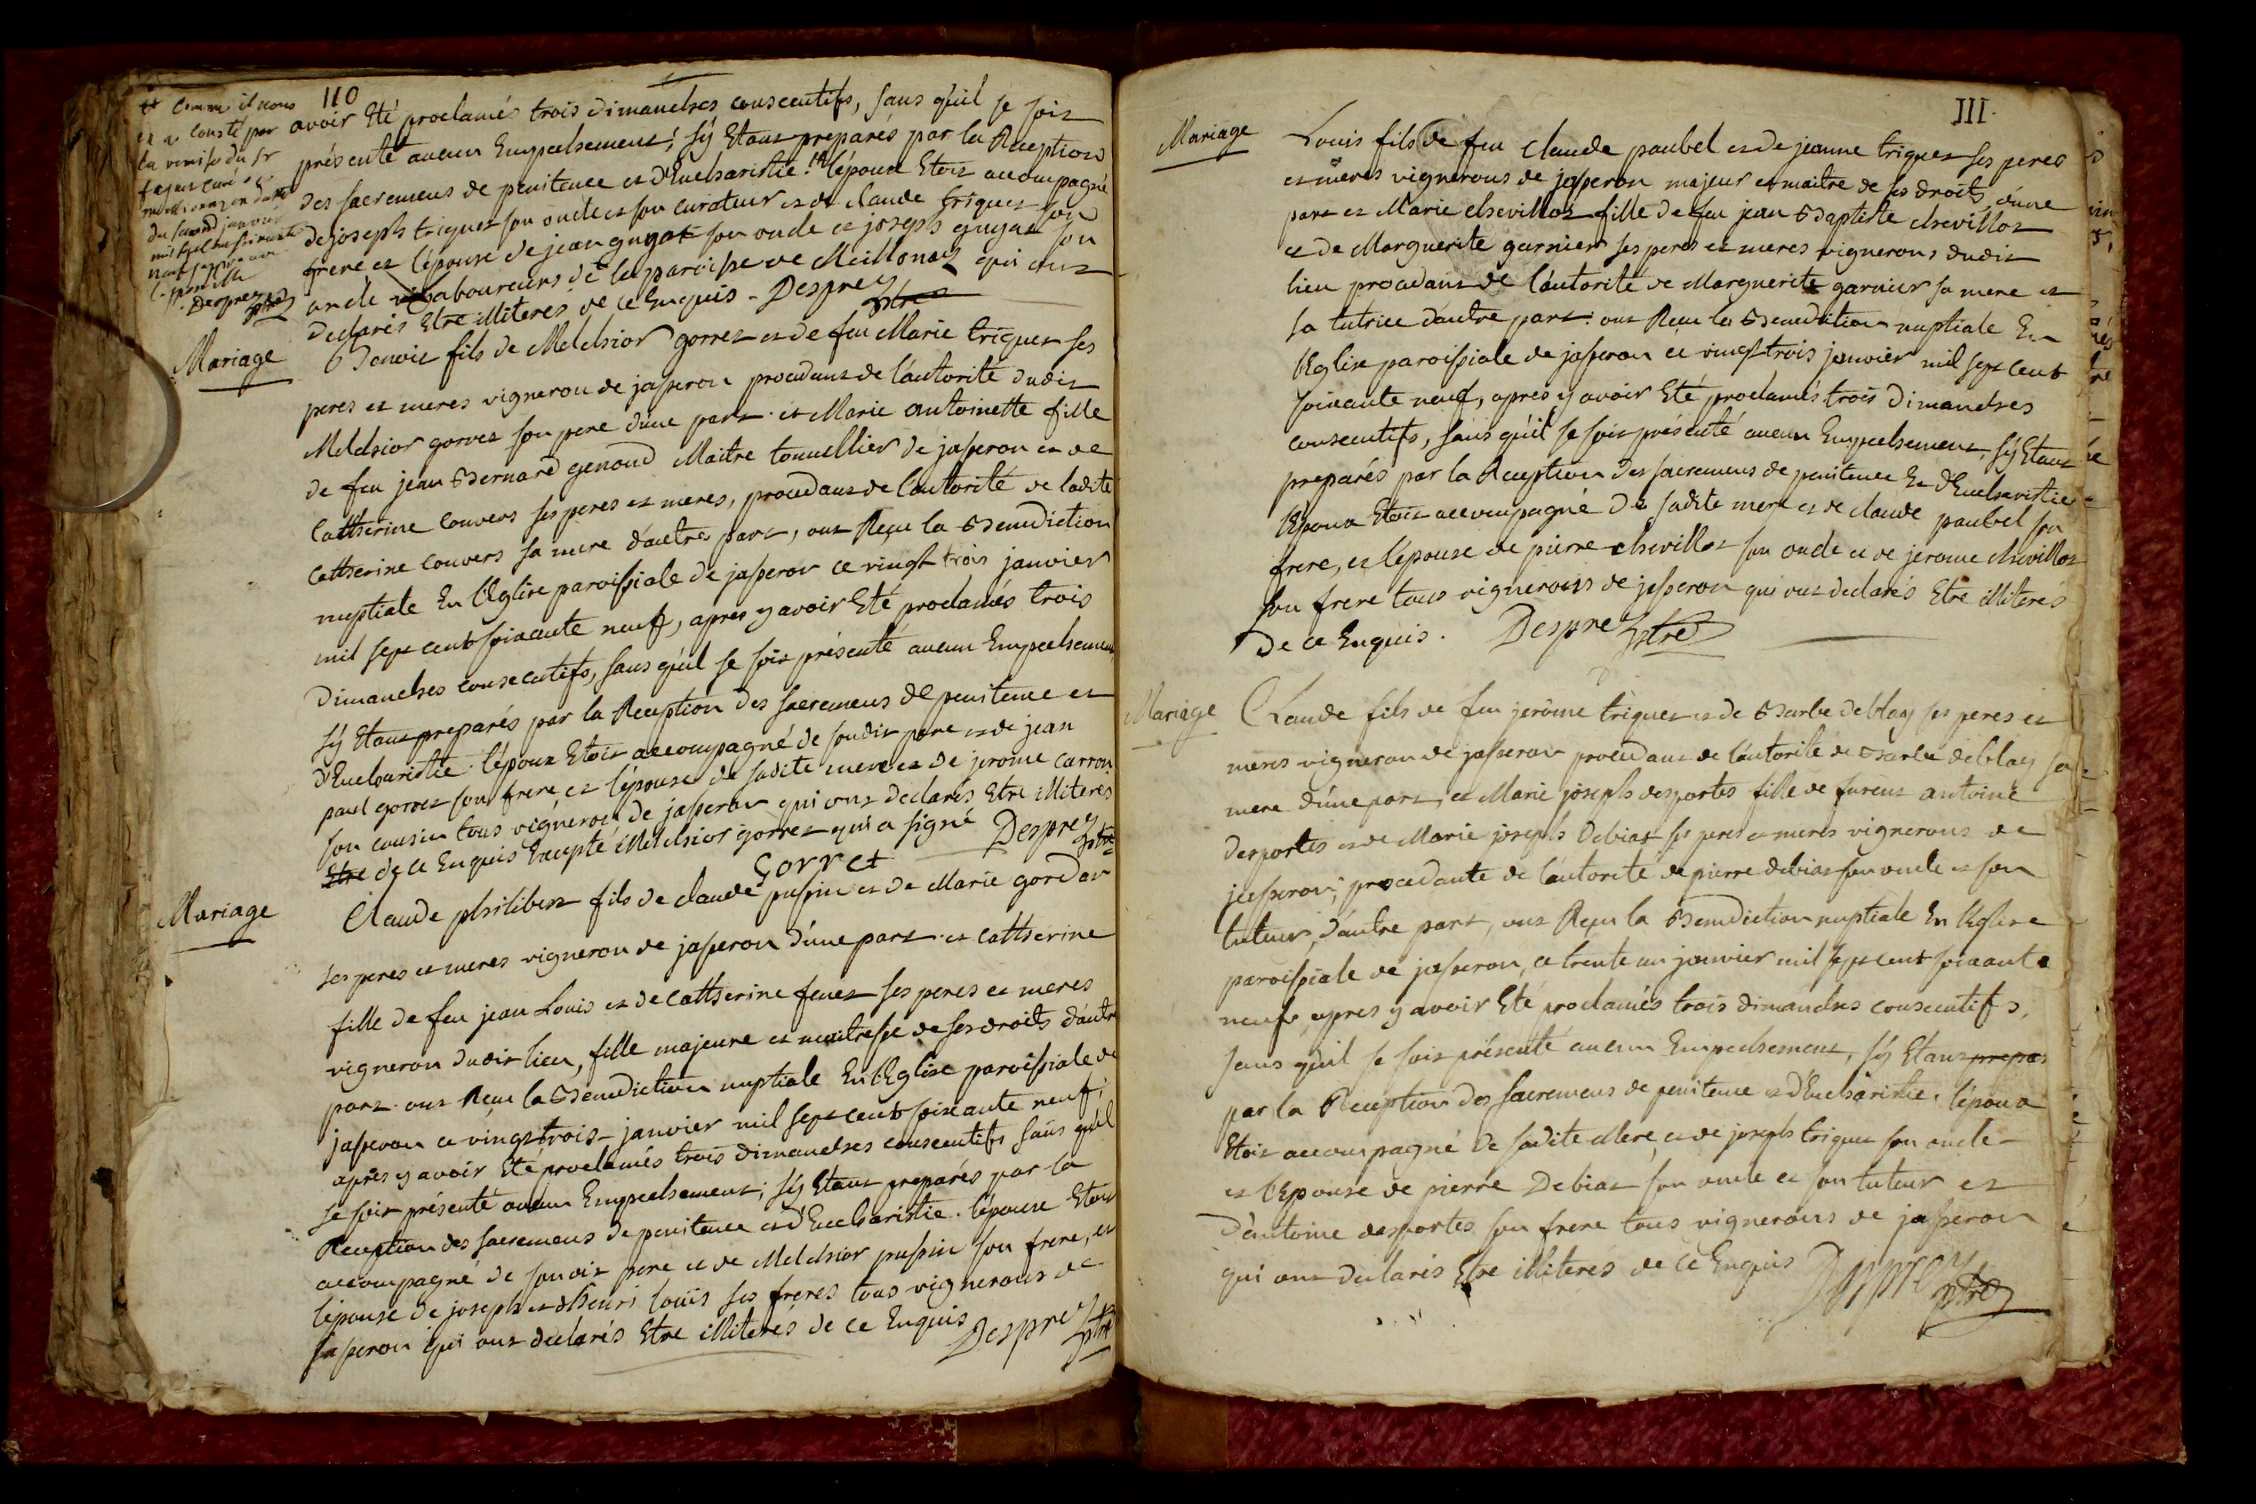 110
+ comme il nous
et a consté par
la remise du sr
curé
du second janvier
mil sept cent soixante
neuf
Desprez
ptre
avoir Eté proclamés trois dimanches consecutifs, sans qu'il se soit
présenté aucun Empechement, sÿ Etant preparés par la Reception
des sacremens de penitence et d'Eucharistie. + l'époux Etoit accompagné
de joseph triquet son oncle et son curateur et de claude triquet son
frere et l'épouse de jean guyat son oncle et joseph guyat son
oncle laboureurs de la paroisse de Meillonaz qui ont
declarés Etre illiterés de ce Enquis. Desprez
ptre
Mariage
Benoit fils de Melchior gorret et de feu Marie triquet ses
peres et meres vigneron de jasseron procedant de l'autorité dudit
Melchior gorret son pere d'une part. et Marie antoinette fille
de feu jean Bernard genoud Maitre tonnellier de jasseron et de
Catherine convers ses peres et meres, procedant de l'autorité de ladite
Catherine convers sa mere d'autre part, ont Reçu la Benediction
nuptiale En l'Eglise paroissiale de jasseron ce vingt trois janvier
mil sept cent soixante neuf, apres y avoir Eté proclamés trois
dimanches consecutifs, sans qu'il se soit présenté aucun Empechement
sÿ Etant preparés par la Reception des sacremens de penitence et
d'Eucharistie. l'époux Etoit accompagné de sondit pere et de jean
paul gorret son frere et l'épouse de sadite mere et de jerome carron
son cousin tous vigneron de jasseron qui ont declarés Etre illiterés
Etre de ce Enquis Excepté Melchior gorret qui a signé Desprez
Gorret ptre
Mariage
Claude philibert fils de claude puspin et de Marie gordar
ses peres et meres vigneron de jasseron d'une part. et catherine
fille de feu jean Louis et de catherine feuet ses peres et meres
vigneron dudit lieu, fille majeure et maitresse de ses droits d'autre
part. ont Reçu la Benediction nuptiale En l'Eglise paroissiale de
jasseron ce vingt trois janvier mil sept cent soixante neuf,
après y avoir Eté proclamés trois dimanches consecutifs sans qu'il
se soit présenté aucun Empechement, sÿ Etant preparés par la
Reception des sacremens de penitence et d'Eucharistie. l'épouse Etoit
accompagné de sondit pere et de Melchior puspin son frere, et
l'épouse de joseph et d'henri loüis ses freres tous vignerons de
jasseron qui ont declarés Etre illiterés de ce Enquis Desprez
ptre
III.
Mariage
Louis fils de feu claude paubel et de jeanne triquet ses peres
et meres vignerons de jasseron majeur et maitre de ses droits d'une
part et Marie chevillot fille de feu jean Baptiste chevillot
et de Marguerite garnier ses peres et meres vignerons dudit
lieu procedant de l'autorité de Marguerite garnier sa mere et
sa tutrice d'autre part. ont Reçu la Benediction nuptiale En
l'Eglise paroissiale de jasseron ce vingt trois janvier mil sept cent
soixante neuf, apres y avoir Eté proclamés trois dimanches
consecutifs, sans qu'il se soit présenté aucun Empechement, sÿ Etant
preparés par la Reception des sacremens de penitence Et d'Eucharistie
l'époux Etoit accompagné de sadite mere et de claude paubel son
frere, et l'épouse de pierre chevillot son oncle et de jerome chevillot
son frere tous vignerons de jasseron qui ont declarés Etre illiterés
de ce Enquis. Desprez ptre
Mariage
Claude fils de feu jerôme triquet et de Barbe deblay ses peres et
meres vigneron de jasseron procedant de l'autorité de Barbe deblay sa
mere d'une part, et Marie joseph desportes fille de furent antoine
desportes et de Marie joseph debiat ses peres et meres vignerons de
jasseron, procedante de l'autorité de pierre debiat son oncle et son
tuteur, d'autre part, ont Reçu la Benediction nuptiale En l'Eglise
paroissiale de jasseron, ce trente un janvier mil sept cent soixante
neuf, apres y avoir Eté proclamés trois dimanches consecutifs,
sans qu'il se soit présenté aucun Empechement, sÿ Etant prepares
par la Reception des sacremens de penitence et d'Eucharistie. l'époux
Etoit accompagné de sadite Mere, et de joseph triquet son oncle
et l'Epouse de pierre Debiat son oncle et son tuteur et
d'antoine desportes son frere tous vignerons de jasseron
qui ont declarés Etre illiterés de ce Enquis Desprez
ptre